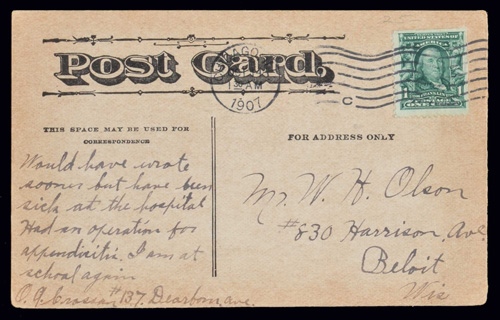 Post Card.
CHICAGO
AM
1907
C
UNITED STATES OF
AMERICA
THIS SPACE MAY BE USED FOR
CORRESPONDENCE
FOR ADDRESS ONLY
Would have wrote
sooner but have been
sick at the hospital
Had an operation for
appendisitis. I am at
school again
#137. Dearborn, ave.
Mr. W. H. Olson
#830 Harrison, Ave.
Beloit
Wis